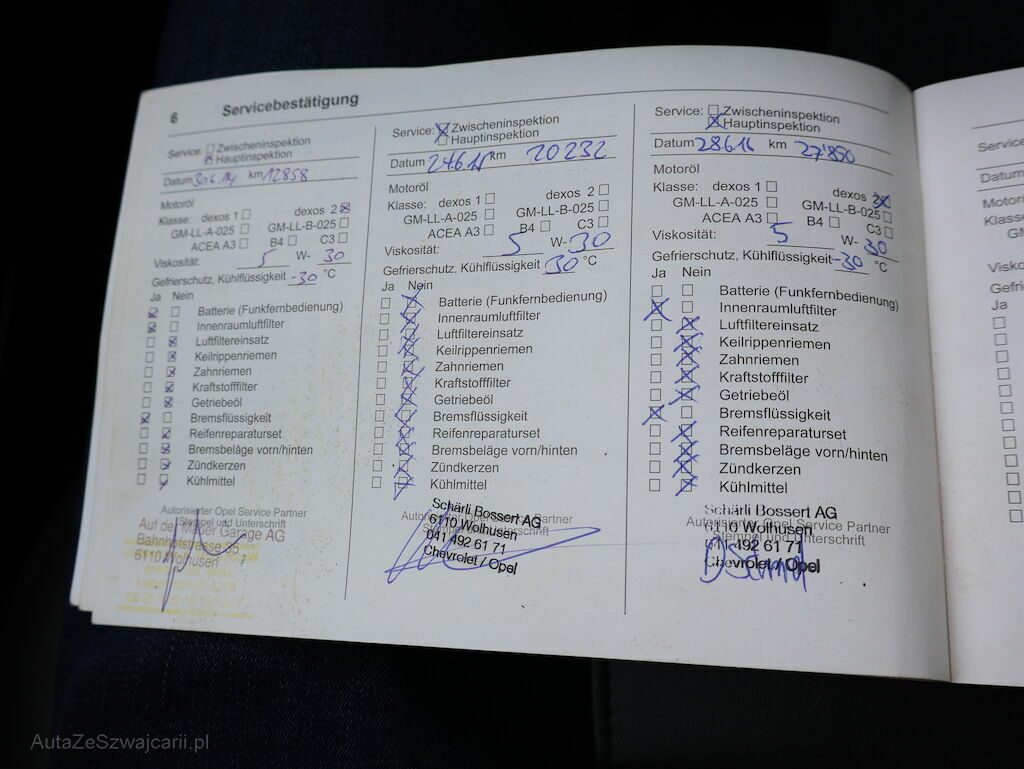 6 Servicebestätigung
Service: Zwischeninspektion
Hauptinspektion
Datum 30.6.14 km 12858
Motoröl
Klasse: dexos 1 dexos 2
GM-LL-A-025 GM-LL-B-025
ACEA A3 B4 C3
Viskosität: 5 W- 30
Gefrierschutz, Kühlflüssigkeit -30 °C
Ja Nein
Batterie (Funkfernbedienung)
Innenraumluftfilter
Luftfiltereinsatz
Keilrippenriemen
Zahnriemen
Kraftstofffilter
Getriebeöl
Bremsflüssigkeit
Reifenreparaturset
Bremsbeläge vorn/hinten
Zündkerzen
Kühlmittel
Autorisierter Opel Service Partner
Stempel und Unterschrift
Auf der Mauer Garage AG
Bahnhofstrasse 35
6110 Wolhusen
Service: Zwischeninspektion
Hauptinspektion
Datum 24.6.15 km 20232
Motoröl
Klasse: dexos 1 dexos 2
GM-LL-A-025 GM-LL-B-025
ACEA A3 B4 C3
Viskosität: 5 W- 30
Gefrierschutz, Kühlflüssigkeit 30 °C
Ja Nein
Batterie (Funkfernbedienung)
Innenraumluftfilter
Luftfiltereinsatz
Keilrippenriemen
Zahnriemen
Kraftstofffilter
Getriebeöl
Bremsflüssigkeit
Reifenreparaturset
Bremsbeläge vorn/hinten
Zündkerzen
Kühlmittel
Autorisierter Opel Service Partner
Stempel und Unterschrift
Schärli Bossert AG
6110 Wolhusen
041 492 61 71
Chevrolet / Opel
Service: Zwischeninspektion
Hauptinspektion
Datum 28.6.16 km 27'850
Motoröl
Klasse: dexos 1 dexos 2
GM-LL-A-025 GM-LL-B-025
ACEA A3 B4 C3
Viskosität: 5 W- 30
Gefrierschutz, Kühlflüssigkeit -30 °C
Ja Nein
Batterie (Funkfernbedienung)
Innenraumluftfilter
Luftfiltereinsatz
Keilrippenriemen
Zahnriemen
Kraftstofffilter
Getriebeöl
Bremsflüssigkeit
Reifenreparaturset
Bremsbeläge vorn/hinten
Zündkerzen
Kühlmittel
Schärli Bossert AG
Autorisierter Opel Service Partner
6110 Wolhusen
Stempel und Unterschrift
041 492 61 71
Chevrolet / Opel
Service
Datum
Motor
Klasse
GM
Visko
Gefri
Ja
AutaZeSzwajcarii.pl